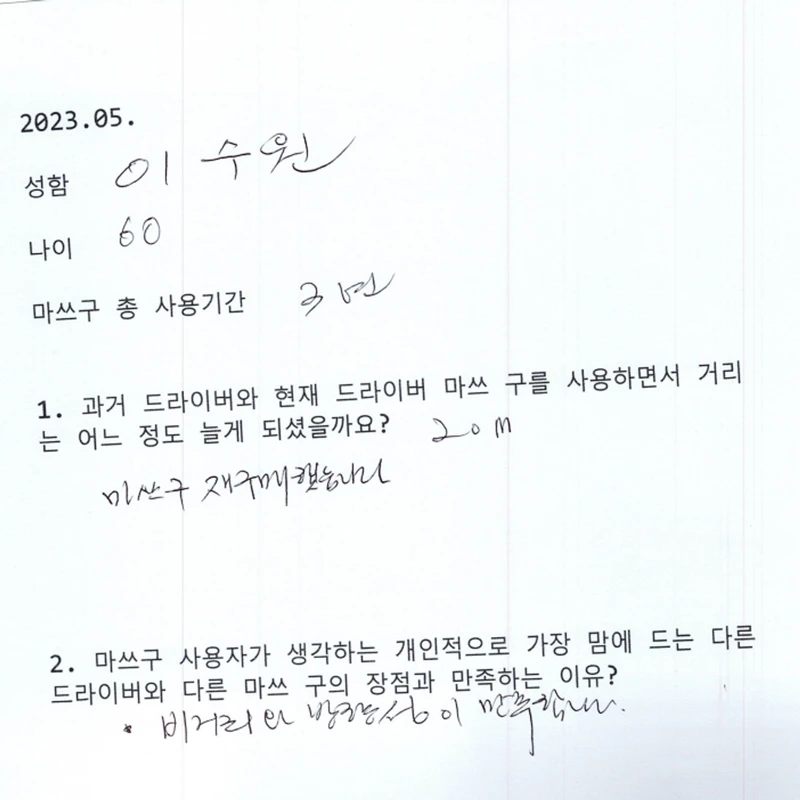 2023.05.
성함 이수원
나이 60
마쓰구 총 사용기간 3년
1. 과거 드라이버와 현재 드라이버 마쓰 구를 사용하면서 거리
는 어느 정도 늘게 되셨을까요? 20m
마쓰구 재구매했습니다
2. 마쓰구 사용자가 생각하는 개인적으로 가장 맘에 드는 다른
드라이버와 다른 마쓰 구의 장점과 만족하는 이유?
• 비거리와 방향성이 만족합니다.